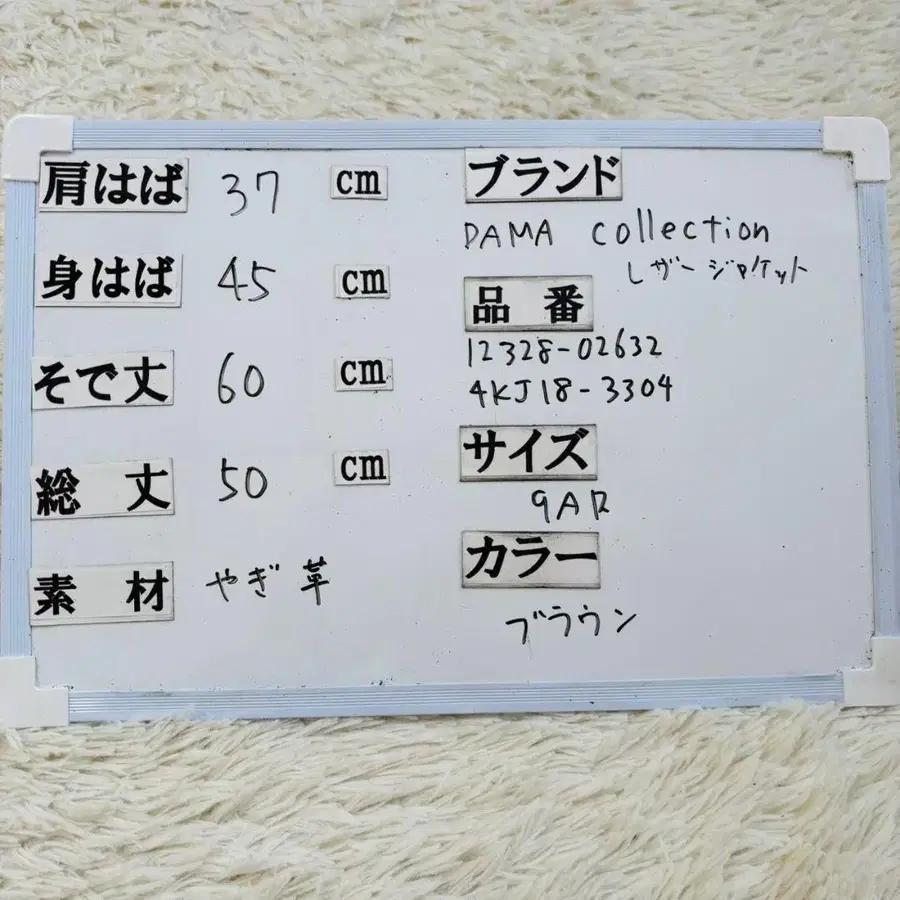 肩はば 37 cm
身はば 45 cm
そで丈 60 cm
総丈 50 cm
素材 やぎ革
ブランド
DAMA collection
レザージャケット
品番
12328-02632
4KJ18-3304
サイズ
9AR
カラー
ブラウン